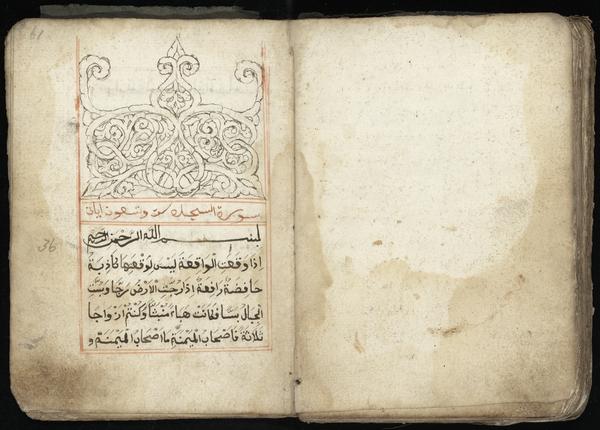 61
سورة السجده ست وتسعون ايات
بسم الله الرحمن الرحيم
36
اِذَا وَقَعَتِ الْوَاقِعَةُ لَيْسَ لِوَقْعَتِهَا كَاذِبَةٌ
خَافِضَةٌ رَافِعَةٌ اِذَا رُجَّتِ الْاَرْضُ رَجًّا وَبُسَّتِ
الْجِبَالُ بَسًّا فَكَانَتْ هَبَاءً مُنْبَثًّا وَكُنْتُمْ اَزْوَاجًا
ثَلَاثَةً فَاَصْحَابُ الْمَيْمَنَةِ مَا اَصْحَابُ الْمَيْمَنَةِ وَ